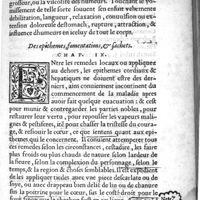 grosseur, ou la viscosité des humeurs. Touchant le vo-
missement de telle sorte suivent son enflure vehemente
debilitation, langueur, relaxation, convulsion ou ex-
tension doloreuse destomach, rupture, attraction, &
influence dhumeurs en iceluy de tout le corps.
Des epithemes, fomentations, & sachets.
CHAP. IX.
ENtre les remedes locaux ou appliquez
au dehors, les epithemes cordiaux &
hepatiques ne doivent estre des der-
niers, ains conviennent incontinent du
commencement de la maladie apres
avoir fait quelque evacuation : & cest
pour munir & contregarder les parties nobles, pour
restaurer leur vertu, pour repousser les vapeurs malignes
& pestiferes, item pour chasser la tristesse du courage,
& resfouir le cueur, ce que sentens quant aux epi-
themes qui le concerne. Il convient attemperer tous
ces remedes selon les circonstances, cestadire, les faire
plus froids ou plus chauds de nature selon lardeur de
la fieure, selon la complexion du personnage, selon le
temps & la region & choses semblables. Il est expedient
de les appliquer tiedes avec vne piece descarlate ou de
soye, ou avec drappeau bien delié de lin ou de chanure
sur la poitrine pour le cueur, sur le costé droit pour le
Note